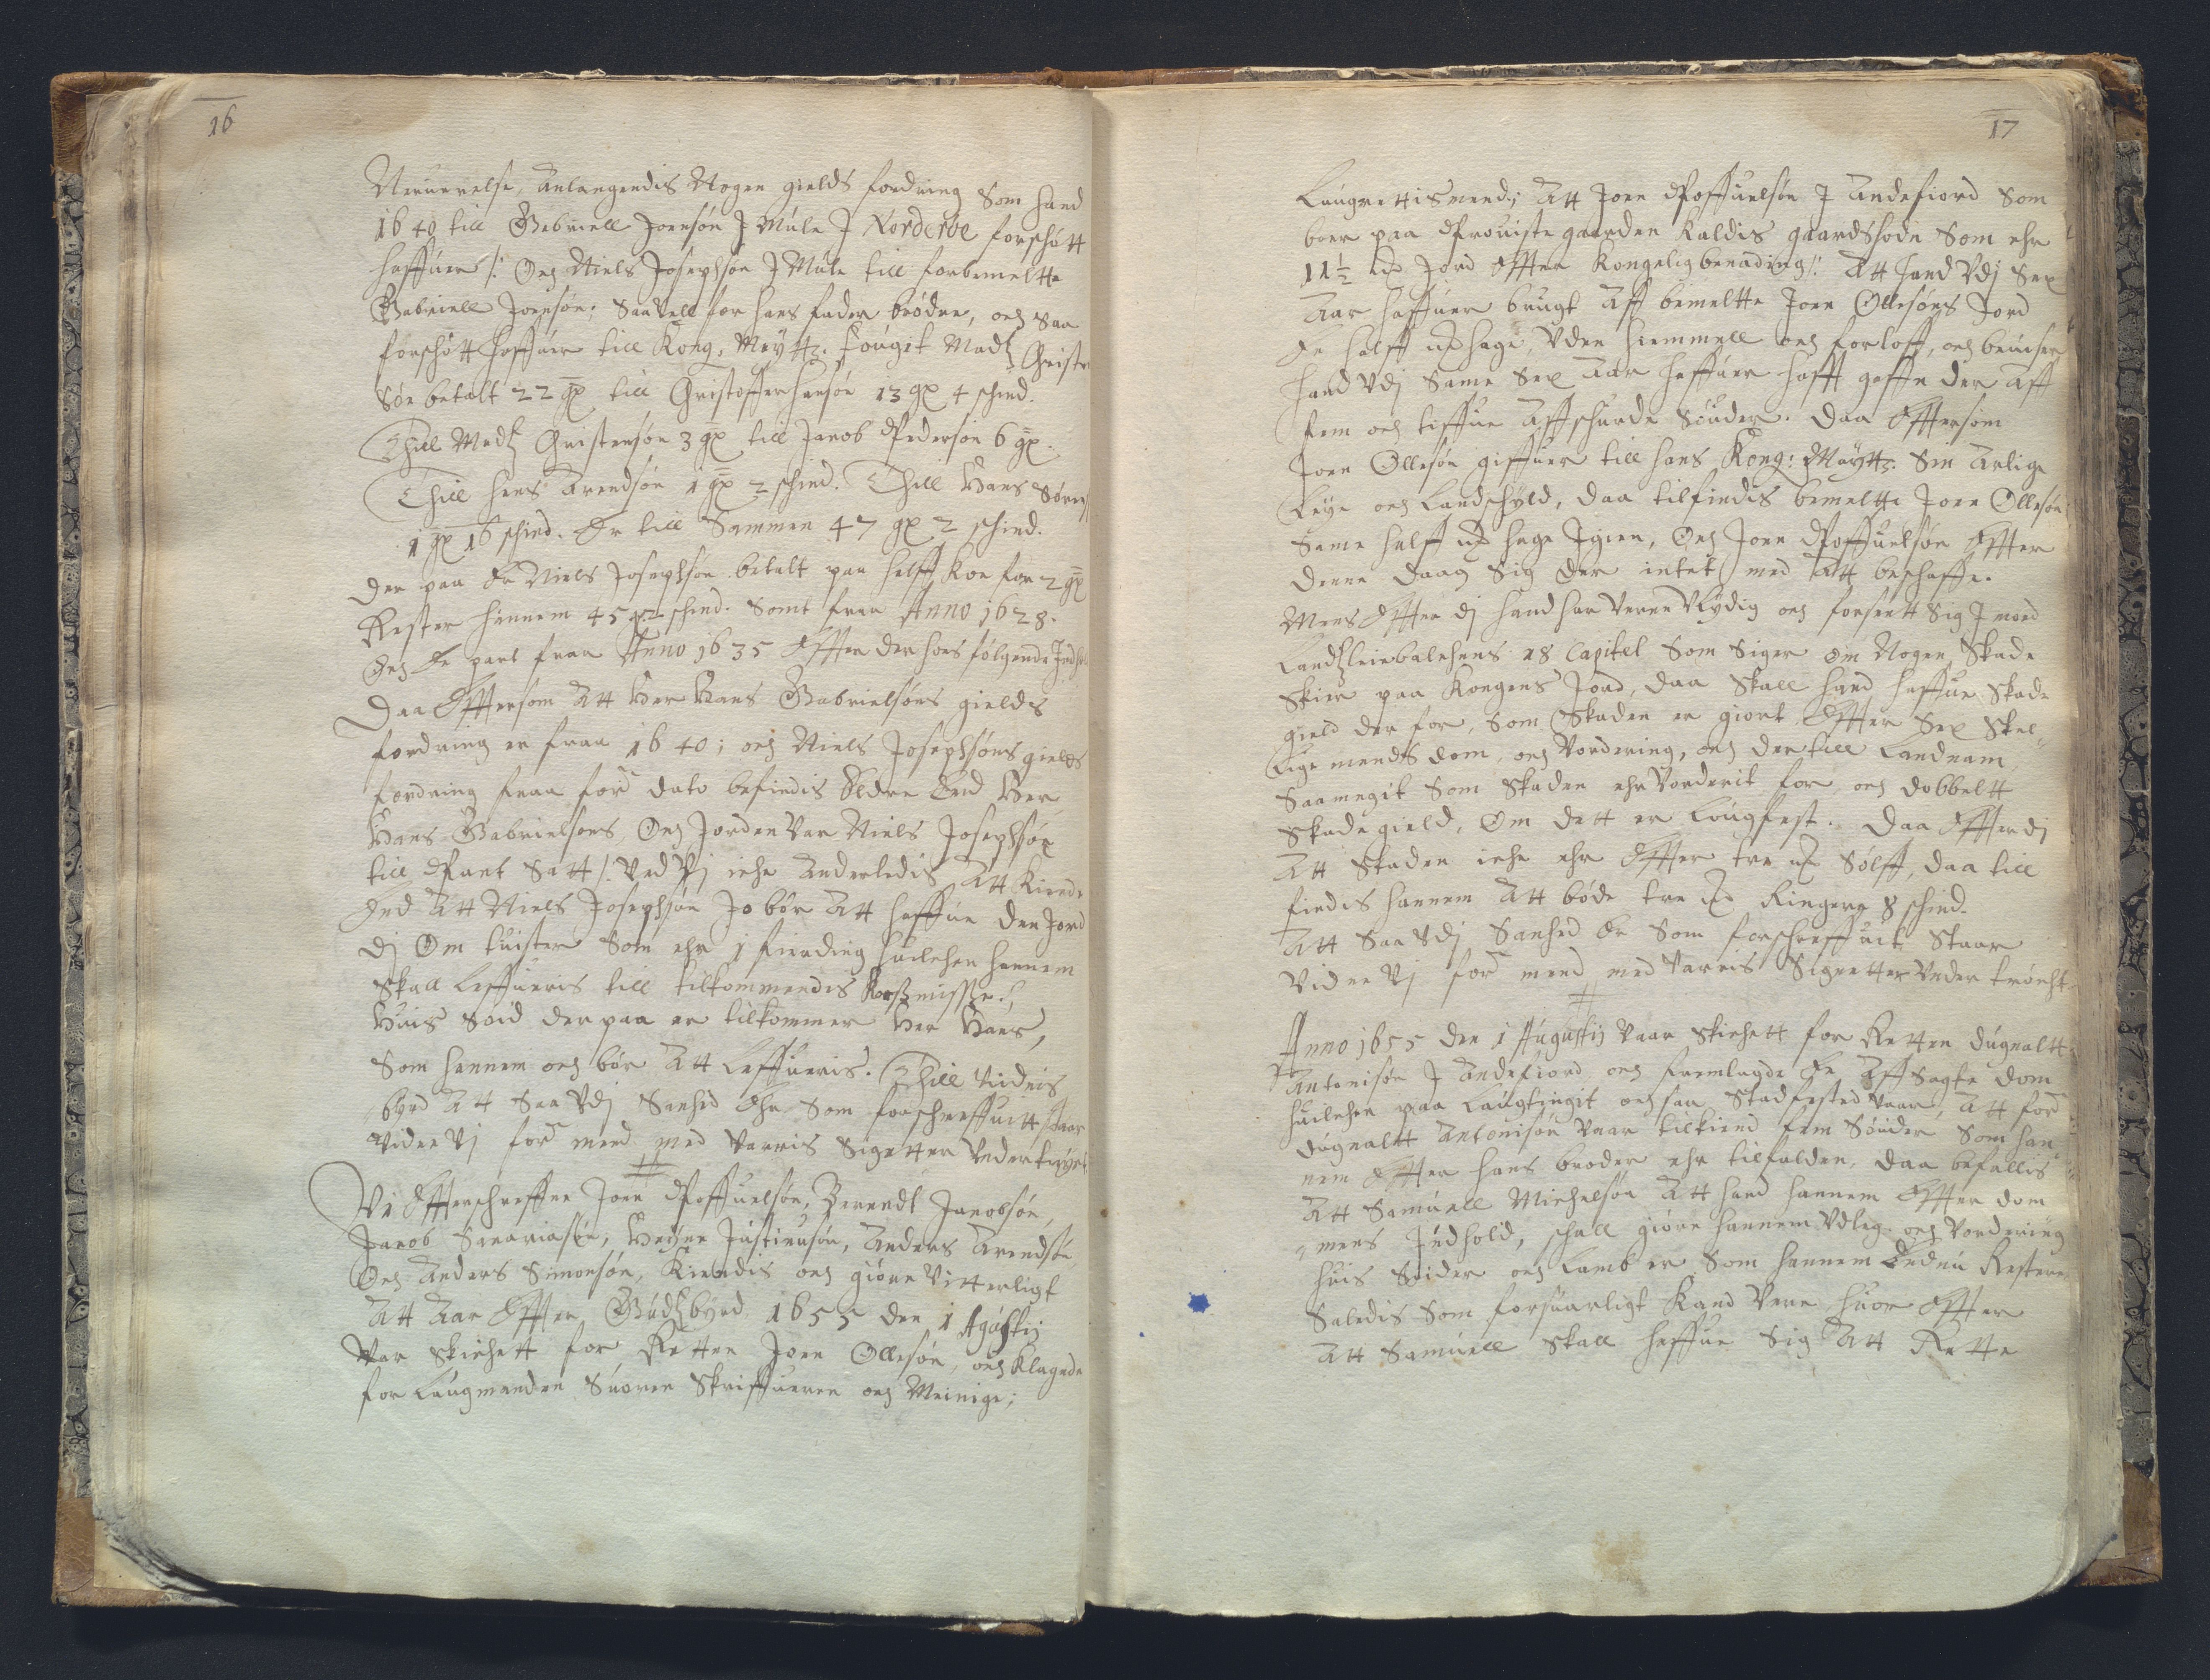 16
Neruerelse, Anlangendis Nogen gields fordring Som hand
1640 till Gabriell Joensøn J Mule J Norderøe forschótt
haffuer /: Och Niels Josephsøn J Mule till forbemeltte
Gabriell Joensøn; Saa vell for hans fader brødre, och saa
forschótt haffuer till Kong. Maytz. fougit Madtz Christen
Søn betalt 22 gx till Christoffer hansøn 13 gx 4 schind.
Thill Madtz Christensøn 3 gx till Jacob Pedersøn 6 gx.
Thill hans Arendsøn 1 gx 2 schind. Thill Hans Sørens
1 gx 16 schind. Er till Sammen 47 gx 2 schind.
der paa Er Niels Josephsøn betalt paa halff Koe for 2 gx
Rester hannem 45 gx 2 schind. Somt fraa Anno 1628.
Och En part fraa Anno 1635 Effter der hos følgende Jndh
Daa Effttersom Att Her Hans Gabrielsøns gields
fordring er fraa 1640; och Niels Josephsøns gields
fordring fraa ford dato befindis Eldre End Her
Hans Gabrielsøns, Och Jorden var Niels Josephsøn
till Pant Satt /: Ved Vj iche Anderledis Att Kiende
End Att Niels Josephsøn Jo bør Att haffue den Jord
dj Om tuister Som ehr 1 fierding huilchen hannem
Skall Leffueris till tilkommendis Korsmisse /:
Huis Soid der paa er tilkommer Her Hans,
Som hannem och bør Att Leffueris. Thill Vidnis
byrd Att Saa Vdj Sanhed Ehr Som forschreffuitt staar
Vidne Vj ford mend med Varris Signetter Vnder trøcht
Vi Effterschreffne Joen Poffuelsøn, Berendt Jacobsøn,
Jacob Sacariasøn, Heyne Justinusøn, Anders Arendsøn
Och Anders Simonsøn, Kiendis och giøre Vitterligt
Att Aar Effter Gudtz byrd 1655 den 1 Agustij
Var Skichett for Retten Joen Ollesøn, och Klagede
for Laugmanden Suoren Skriffueren och Meinige;
17
Laugrettismend; Att Joen Poffuelsøn J Andefiord Som
boer paa Prouiste gaarden Kaldis gaardshode Som ehr
11½ mk Jord Effter Kongelig benading /: Att hand Vdj Sex
Aar haffuer brugt Aff bemeltte Joen Ollesøns Jord
En halff mk hage, Vden hiemmell och forloff, och beuiser
hand Vdj Same Sex Aar haffuer hafft gaffn der Aff
fem och tiffue Affschurde Souder. Daa Efftersom
Joen Ollesøn giffuer till hans Kong: Maytz. Sin Arlige
Leye och Landschyld, daa tilfindis bemeltte Joen Ollesøn
Same halff mk hage Jgien, Och Joen Poffuelsøn Effter
denne daag Sig der intet med Att beschaffe.
Mens Effter dj hand har veren Vlydig och forseett Sig J mod
Landtzleiebalchens 18 Capitel Som Siger Om Nogen Skade
Skier paa Kongens Jord, daa Skall hand haffue Skade
gield der for, Som Skaden er giort Effter Sex Skel-
lige mends dom, och Vordering, och der till Landnam
Saa megit Som Skaden ehr Vorderit for, och dobbeltt
Skade gield, Om dett er Løugfest. Daa Effter dj
Att Skaden iche ehr Effter tre mk Sølff, daa till
findis hannem Att bøde tre mk Ringere 8 schind.
Att Saa Vdj Sanhed Er Som forschreffuit Staar
Vidne Vj ford mend med Varris Signetter Vnder trøcht
Anno 1655 den 1 Augustij Vaar Skichett for Retten Dugnaltt
Antonisøn J Andefiord och fremlagde En Aff Sagte dom
huilchen paa Laugtingit och saa Stadfested Vaar, Att ford
Dugnaltt Antonisøn Vaar tilkiend fem Souder Som han
nem Effter hans broder ehr tilfalden. Daa befallis
Att Samuell Michelsøn Att hand hannem Effter dom
mens Jndhold, schall giøre hannem Vdleg och Vordering
huis Soider och Lamb er Som hannem Endnu Resterer
Saledis Som forsuarligt Kand Vere, huor Effter
Att Samuell Skall haffue Sig Att Rette